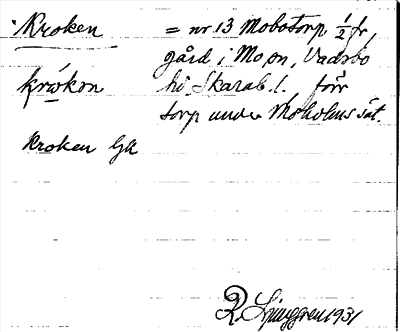 Kroken = nr 13 Mobotorp ½ fr,
gård i Mo sn, Vadsbo
krókon hd Skarab. l. förr
torp under Moholms sät.
Kroken Gk
R Ljunggren 1931